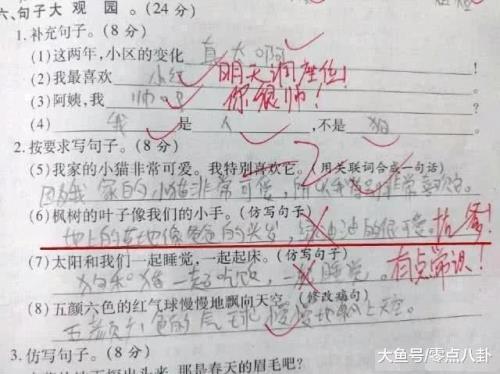 六、句子大观园。(24分)
1.补充句子。(8分)
(1)这两年,小区的变化 真大啊 !
(2)我最喜欢 小红 ! 明天调座位!
(3)阿姨,我 帅吧 ! 你很帅!
(4) 我 是 人 ,不是 狗
2.按要求写句子。(8分)
(5)我家的小猫非常可爱。我特别喜欢它。(用关联词合成一句话)
因为我家的小猫非常可爱,
(6)枫树的叶子像我们的小手。(仿写句子)
地上的草地像爸爸的光头,
(7)太阳和我们一起睡觉,一起起床。(仿写句子) 有点常识!
狗和猫一起吃饭,一起睡觉。
(8)五颜六色的红气球慢慢地飘向天空。(修改病句)
五颜六色的气球慢慢地飘上天空。
3.仿写句子。(8分)
那是春天的眉毛吧?
大鱼号/零点八卦